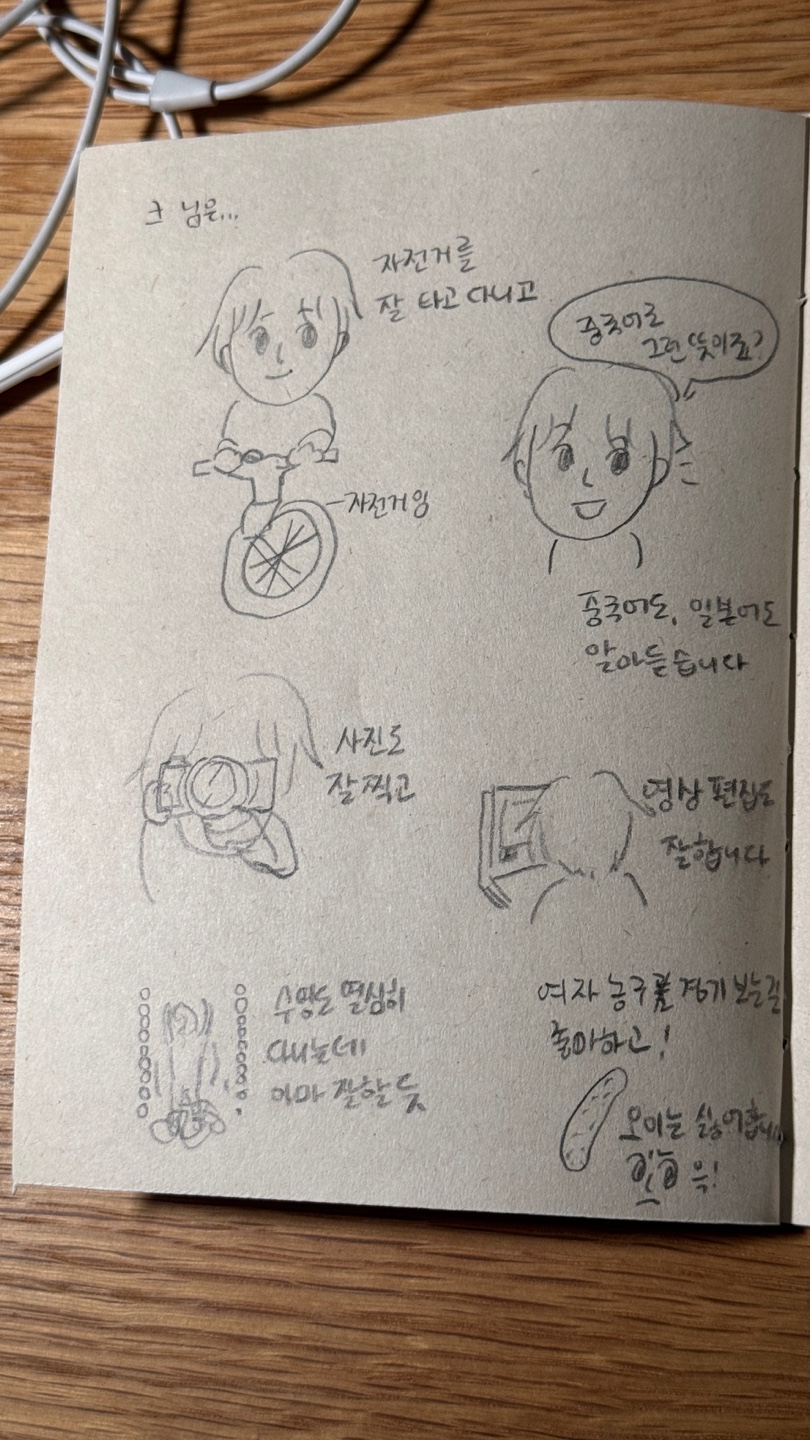 크 님은...
자전거를
잘 타고 다니고
자전거임
중국어로
그런 뜻이죠?
중국어도, 일본어도
알아듣습니다
사진도
잘 찍고
영상 편집도
잘합니다
수영도 열심히
다니는데
아마 잘할 듯
여자 농구 경기 보는걸
좋아하고!
오이는 싫어합니다
윽!